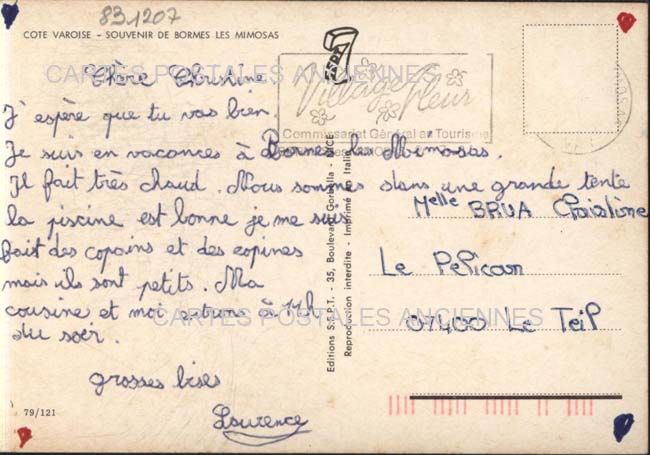 83.1207
COTE VAROISE - SOUVENIR DE BORMES LES MIMOSAS
CARTES POSTALES ANCIENNES
Village Fleuri
Commissariat Général au Tourisme
Chère Christine
J'espère que tu vas bien.
Je suis en vacances à Bormes les Mimosas.
Il fait très chaud. Nous sommes dans une grande tente
la piscine est bonne je me suis
fait des copains et des copines
mais ils sont petits. Ma
cousine et moi
à 11h
du soir.
grosses bises
Laurence
79/121
Editions S.S.P.T. - 35, Boulevard Gorbella - NICE
Reproduction interdite - Imprimé en Italie
Melle BRUA
Le Pelican
07400 Le Teil
CARTES POSTALES ANCIENNES